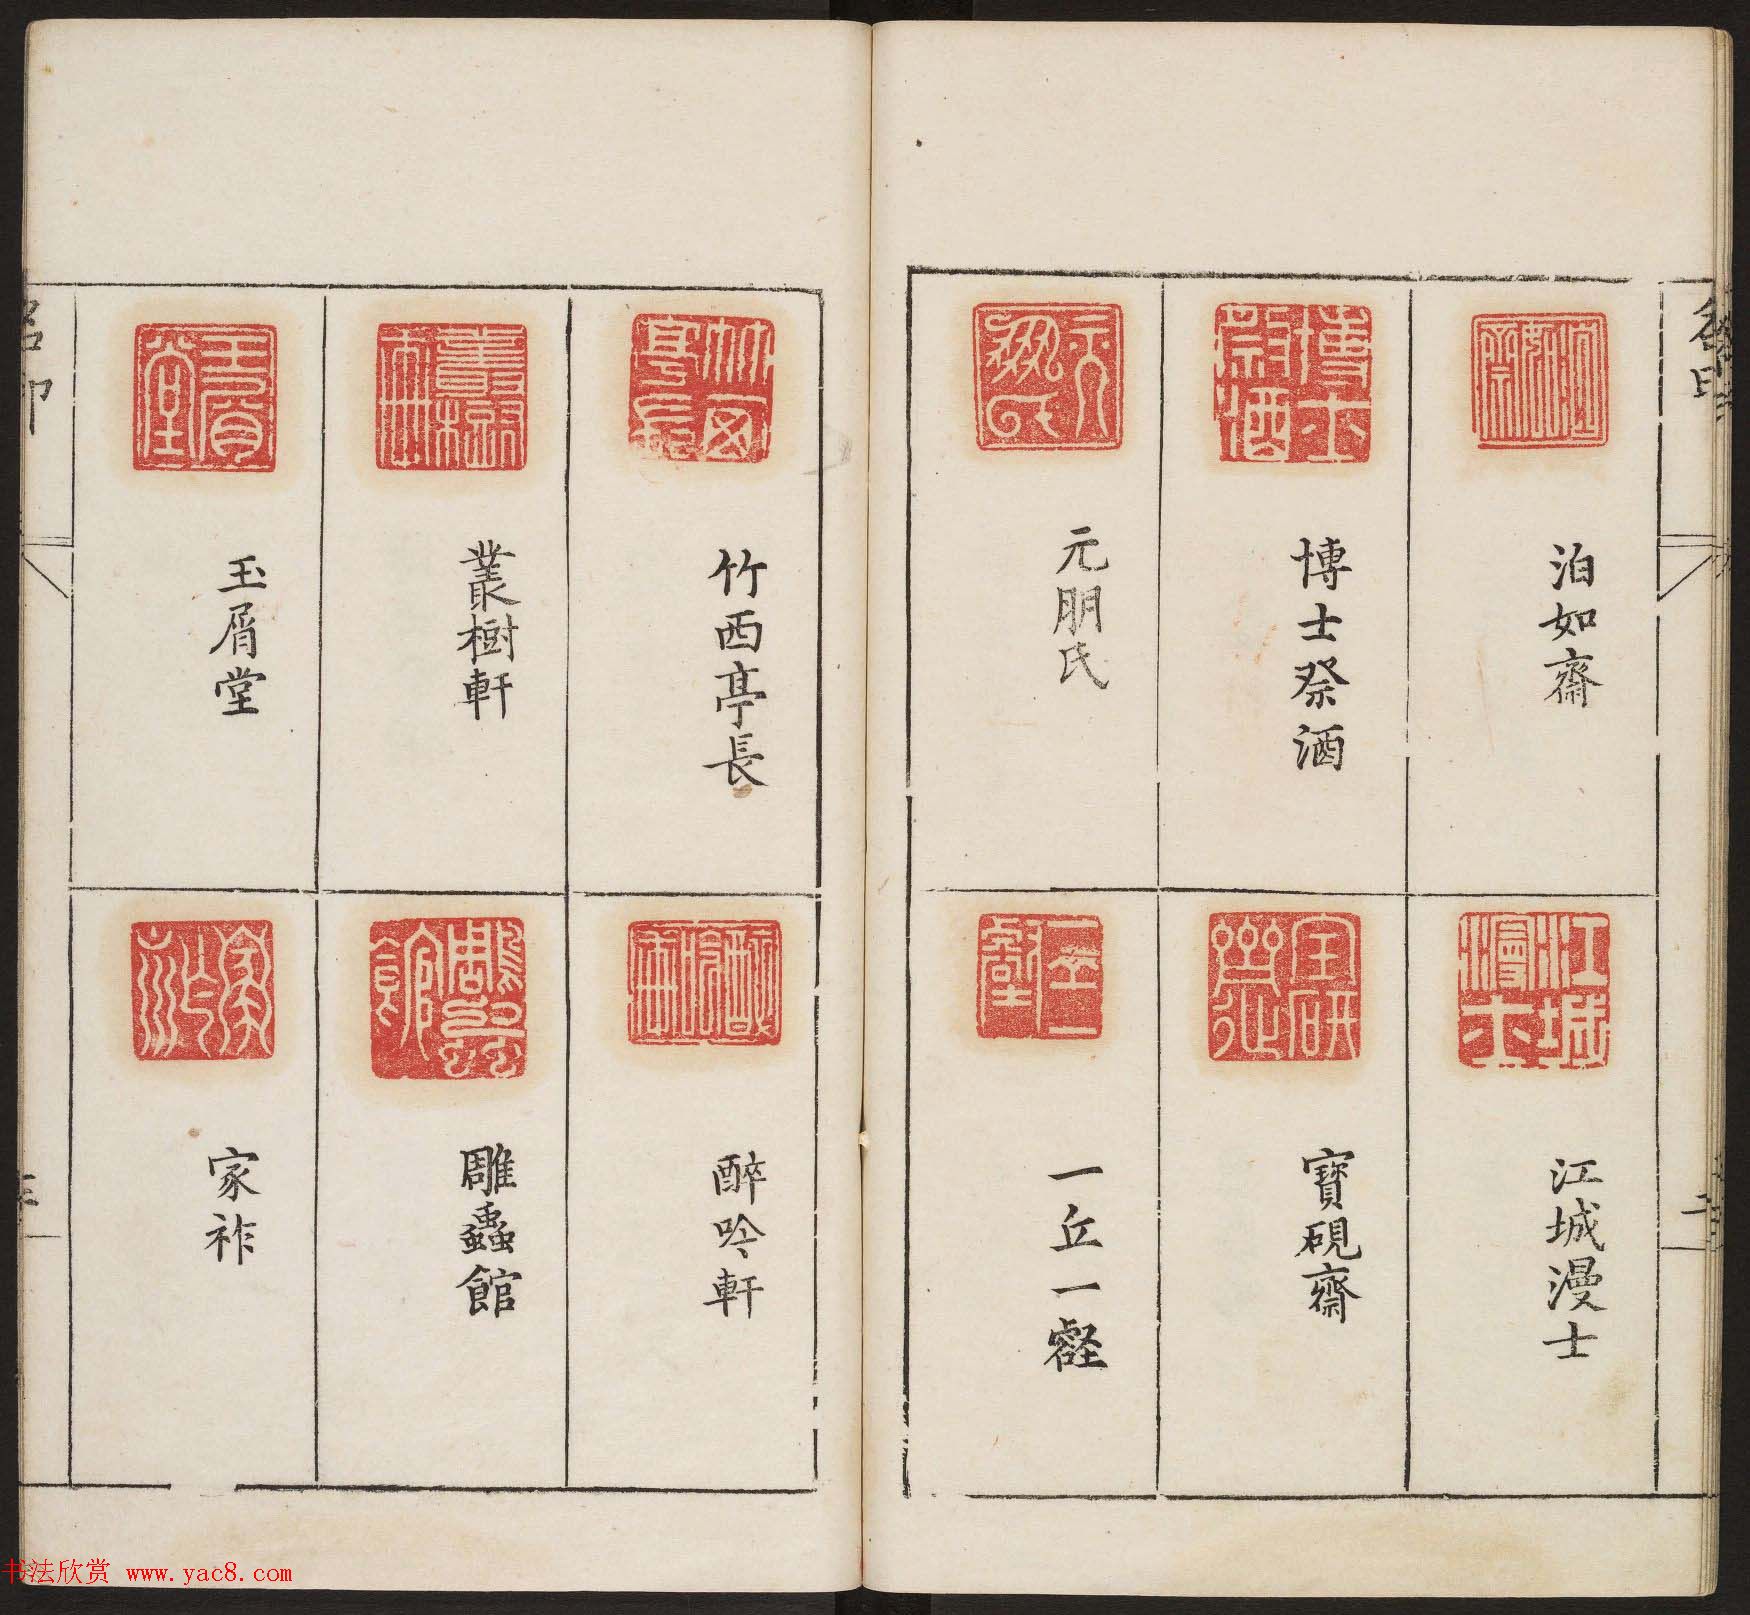 泊如齋
博士祭酒
元朋氏
江城漫士
寶硯齋
一丘一壑
竹西亭長
叢樹軒
玉屑堂
醉吟軒
雕蟲館
家祚
书法欣赏 www.yac8.com